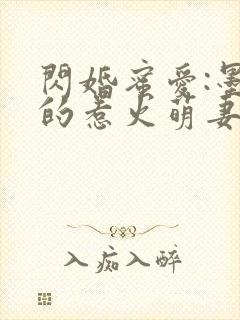 閃婚蜜愛:墨
的惹火萌妻
入痴入醉